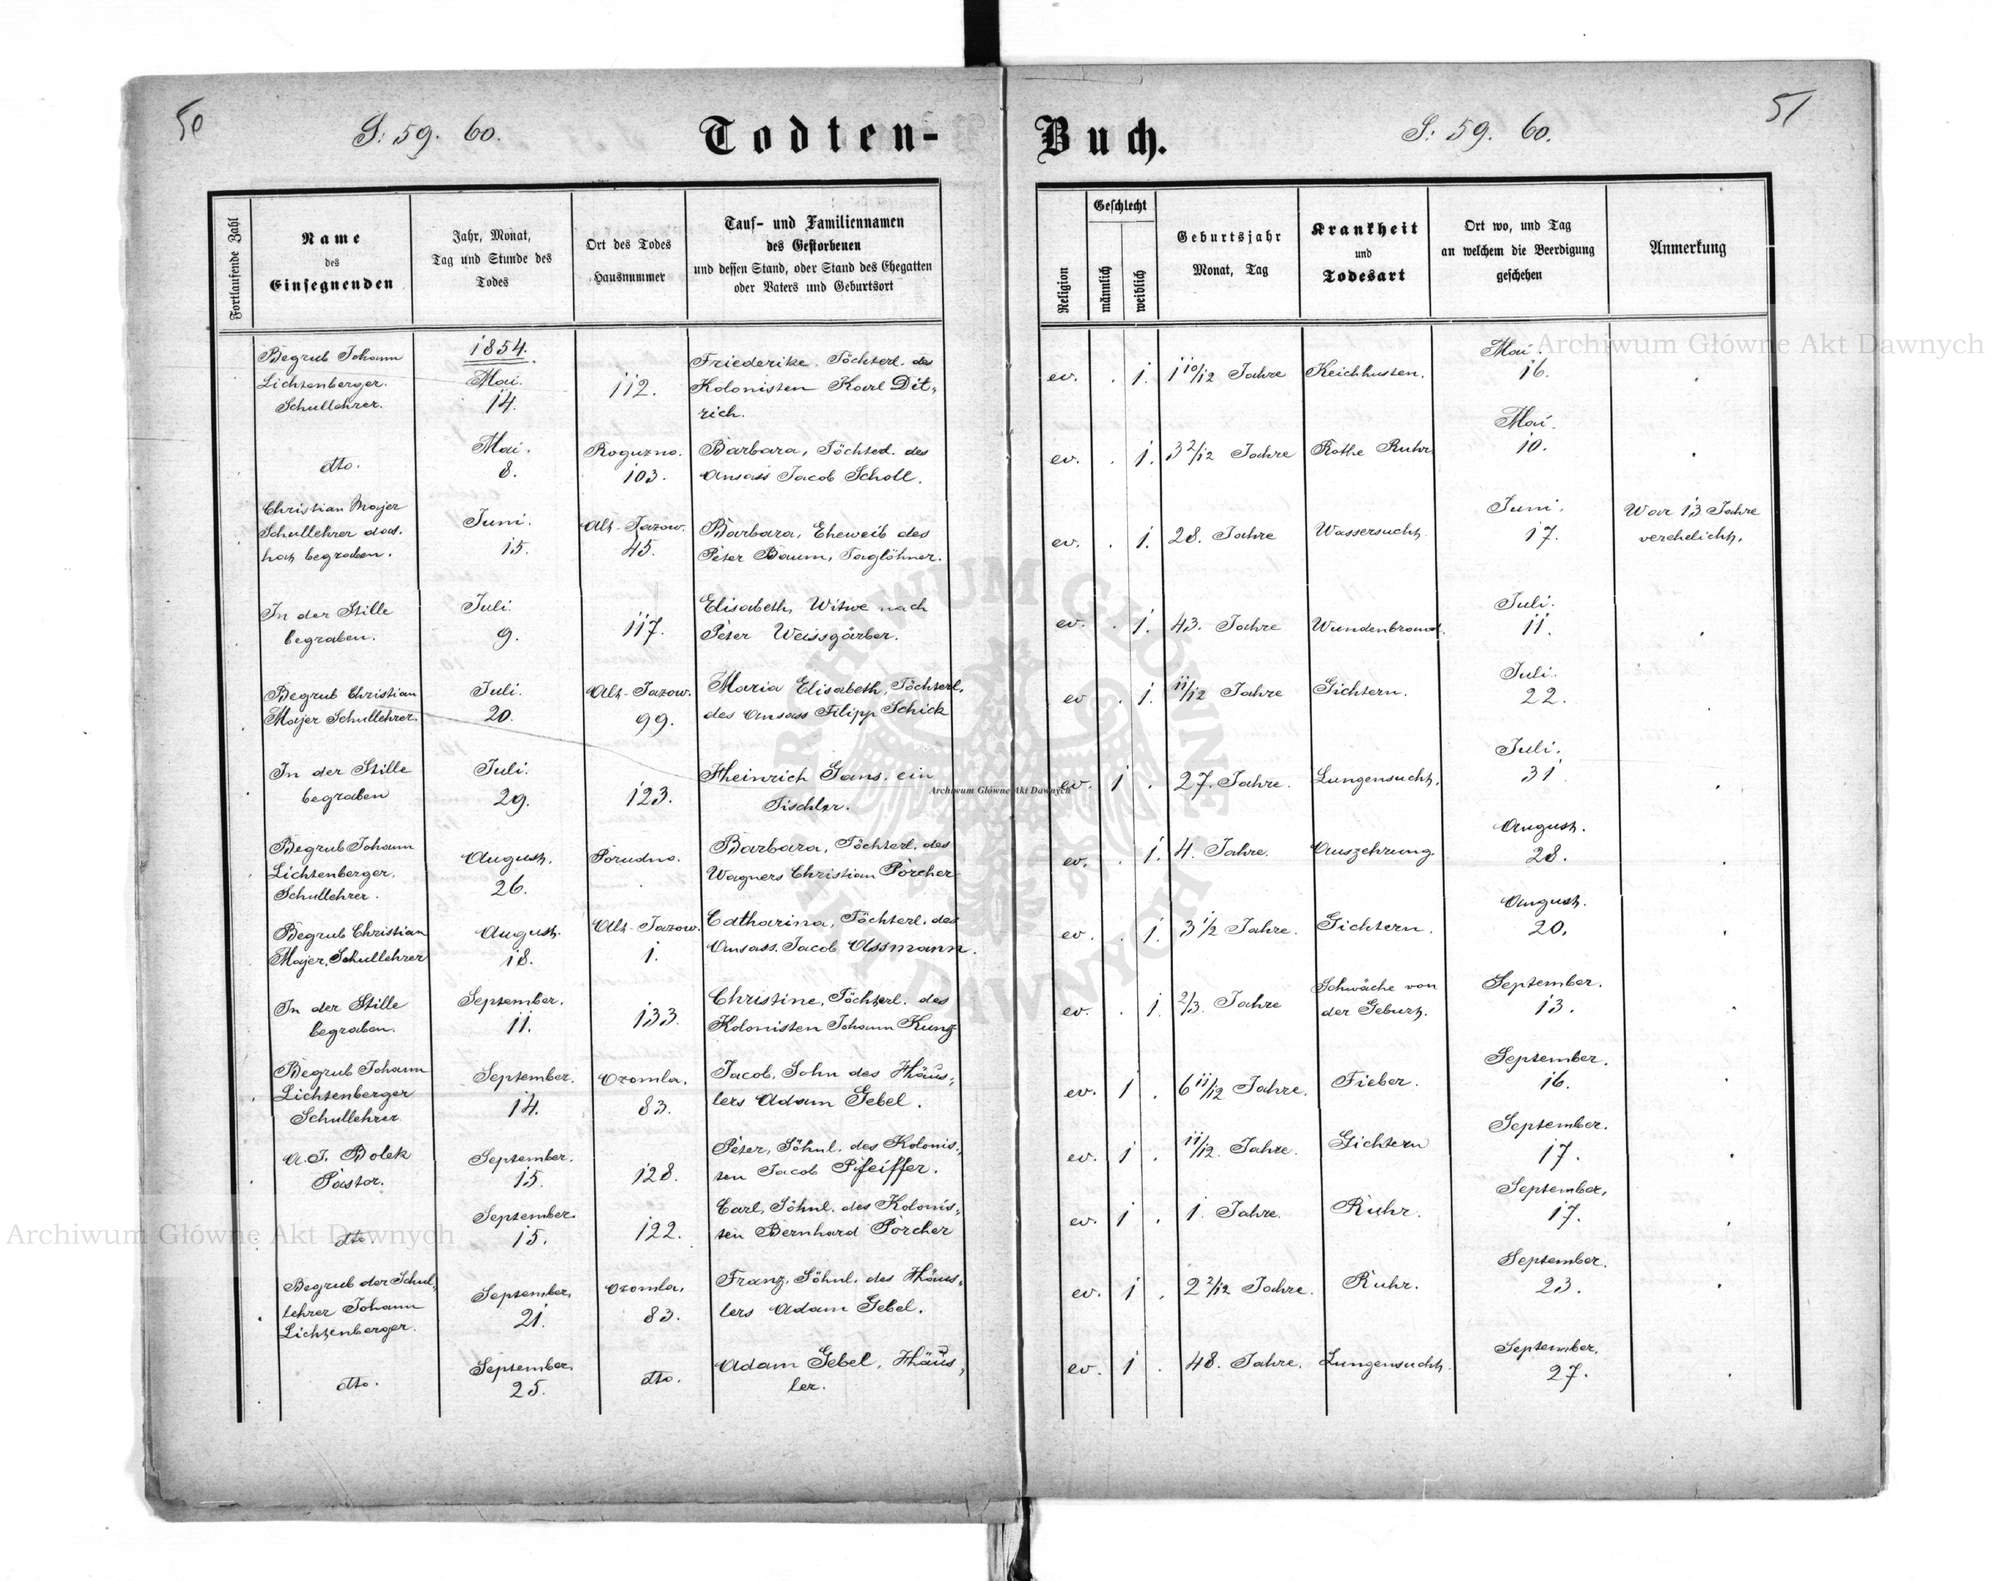 50
S: 59. 60.
Todten-
Buch.
S: 59. 60.
51
Fortlaufende Zahl
Name
des
Einsegnenden
Jahr, Monat,
Tag und Stunde des
Todes
Ort des Todes
Hausnummer
Tauf- und Familiennamen
des Gestorbenen
und dessen Stand, oder Stand des Ehegatten
oder Vaters und Geburtsort
Religion
Geschlecht
männlich
weiblich
Geburtsjahr
Monat, Tag
Krankheit
und
Todesart
Ort wo, und Tag
an welchem die Beerdigung
geschehen
Anmerkung
Begrub Johann
Lichtenberger.
Schullehrer.
1854.
Mai.
14.
112.
Friederike, Töchterl. des
Kolonisten Karl Dit-
rich.
ev. . 1. 1 10/12 Jahre Keichhusten.
Mai.
16.
dto.
Mai.
8.
Roguzno.
103.
Barbara, Töchterl. des
Ansass Jacob Scholl.
ev. . 1. 3 2/12 Jahre Rothe Ruhr
Mai.
10.
Christian Majer
Schullehrer das.
hat begraben.
Juni.
15.
Alt-Jazow.
45.
Barbara, Eheweib des
Peter Baum, Taglöhner.
ev. . 1. 28. Jahre Wassersucht.
Juni.
17.
War 13 Jahre
verehelicht.
In der Stille
begraben.
Juli.
9.
117.
Elisabeth, Witwe nach
Peter Weissgärber.
ev. . 1. 43. Jahre Wundenbrand.
Juli.
11.
Begrub Christian
Majer Schullehrer.
Juli.
20.
Alt-Jazow.
99.
Maria Elisabeth, Töchterl.
des Ansass Filipp Schick
ev . 1. 11/12 Jahre Gichtern.
Juli.
22.
In der Stille
begraben
Juli.
29.
123.
Heinrich Gans, ein
Tischler.
ev. 1 . 27. Jahre. Lungensucht.
Juli.
31.
Begrub Johann
Lichtenberger.
Schullehrer.
August.
26.
Porudno.
Barbara, Töchterl. des
Wagners Christian Porcher
ev. . 1. 4. Jahre. Auszehrung.
August.
28.
Begrub Christian
Majer, Schullehrer
August.
18.
Alt-Jazow.
1.
Catharina, Töchterl. des
Ansass. Jacob Assmann.
ev. . 1. 3 1/2 Jahre. Gichtern.
August.
20.
In der Stille
begraben.
September.
11.
133.
Christine, Töchterl. des
Kolonisten Johann Kunz
ev. . 1. 2/3. Jahre
Schwäche von
der Geburt.
September.
13.
Begrub Johann
Lichtenberger
Schullehrer.
September.
14.
Ozomla.
83.
Jacob, Sohn des Häus-
lers Adam Gebel.
ev. 1 . 6 11/12 Jahre. Fieber.
September.
16.
A. J. Bolek
Pastor.
September.
15.
128.
Peter, Söhnl. des Kolonis-
ten Jacob Pfeiffer.
ev. 1 . 11/12. Jahre. Gichtern
September.
17.
dto.
September.
15.
122.
Carl, Söhnl. des Kolonis-
ten Bernhard Porcher
ev. 1 . 1. Jahre. Ruhr.
September.
17.
Begrub der Schul-
lehrer Johann
Lichtenberger.
September.
21.
Ozomla.
83.
Franz, Söhnl. des Häus-
lers Adam Gebel.
ev. 1 . 2 2/12 Jahre. Ruhr.
September.
23.
dto.
September.
25.
dto.
Adam Gebel, Häus-
ler.
ev. 1 . 48. Jahre. Lungensucht.
September.
27.
Archiwum Główne Akt Dawnych
Archiwum Główne Akt Dawnych
Archiwum Główne Akt Dawnych
ARCHIWUM GŁÓWNE AKT DAWNYCH